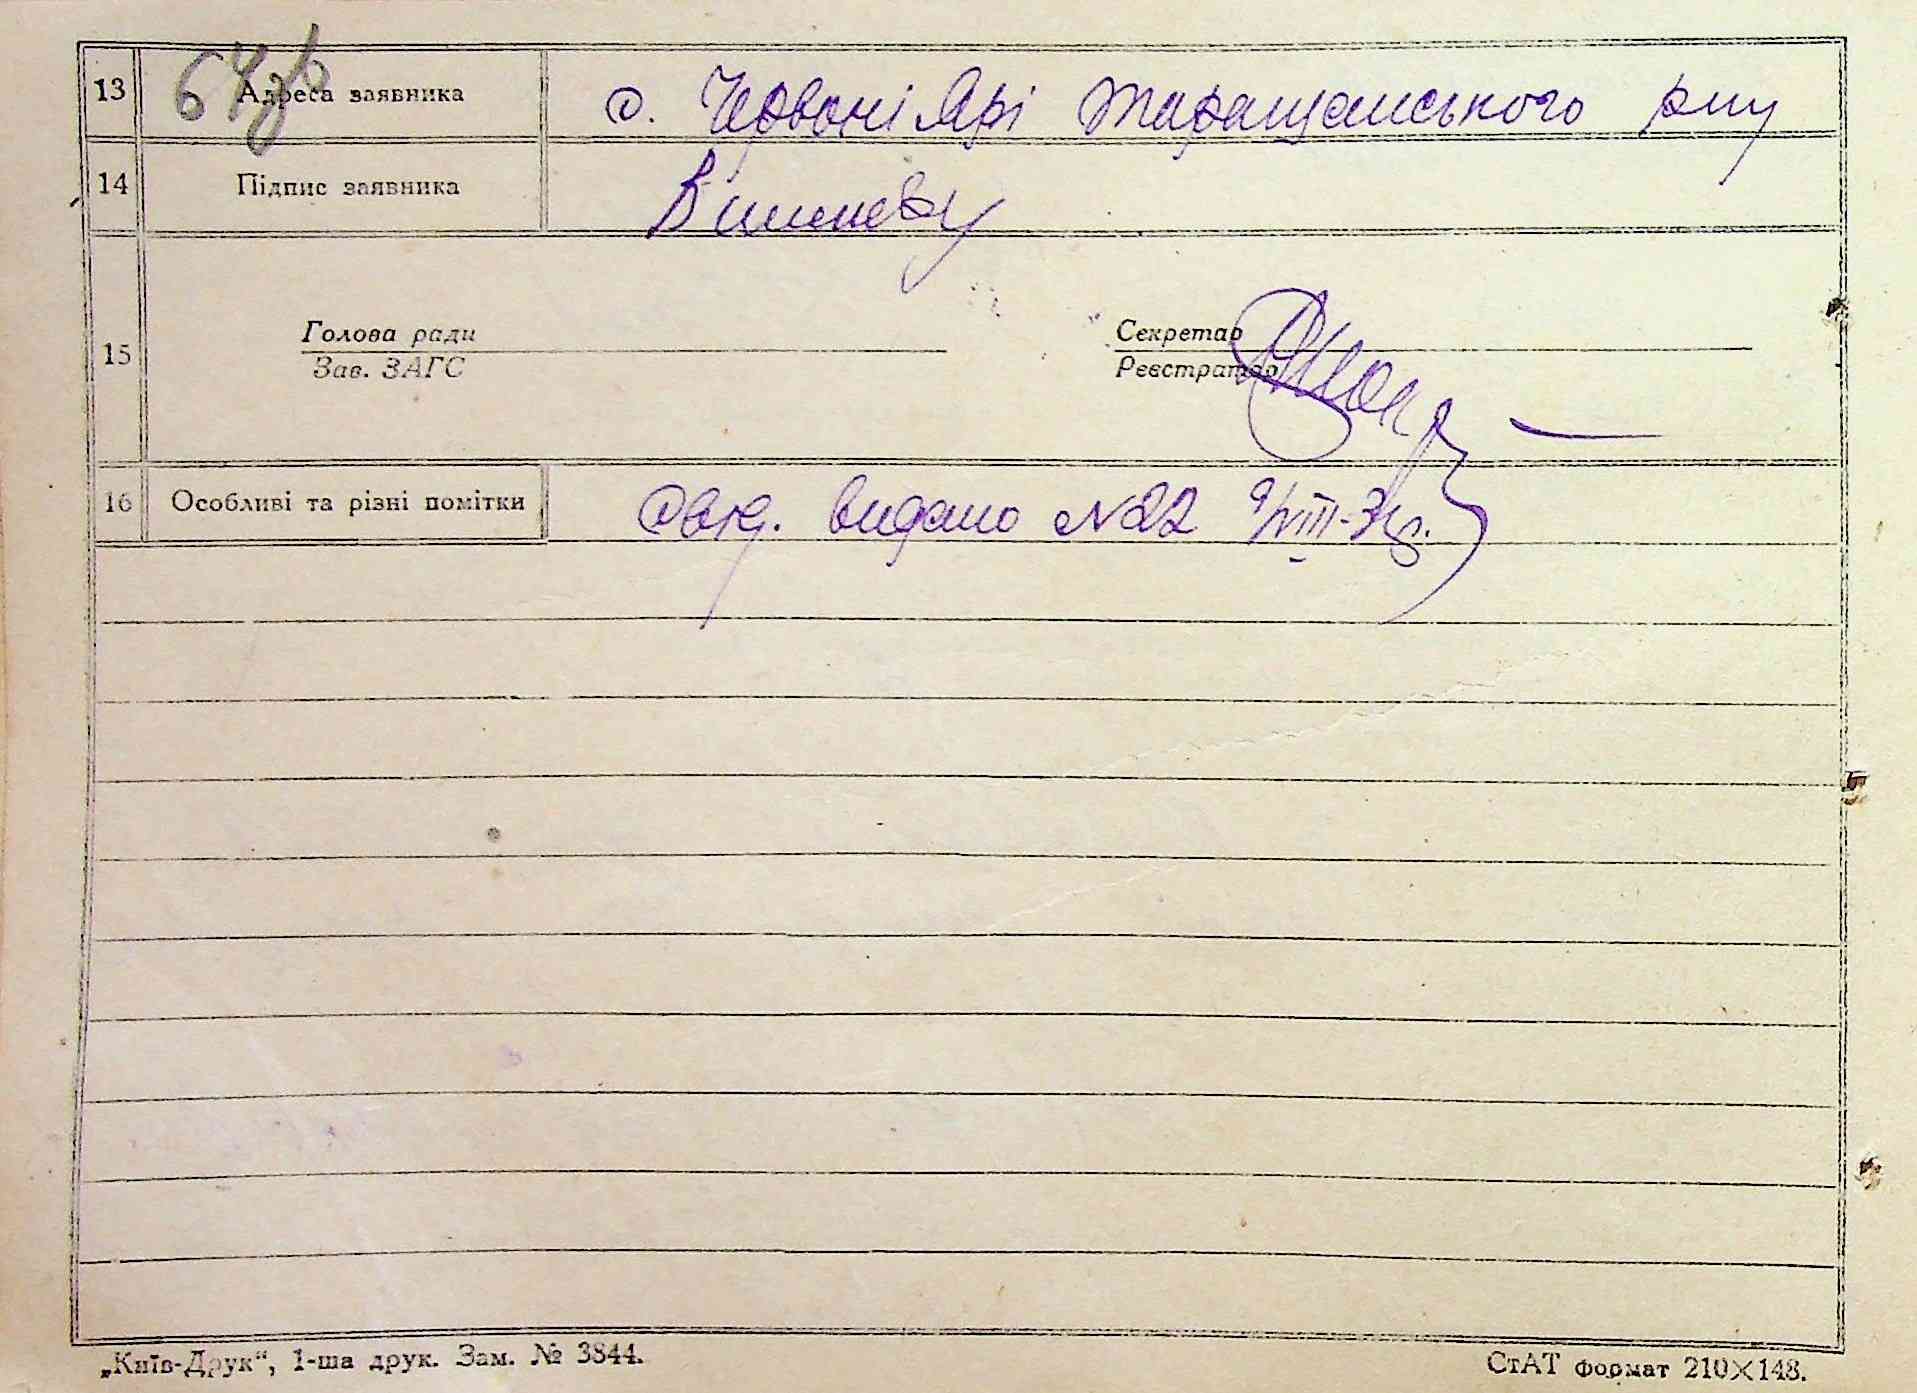 64зв
13 Адреса заявника с. Червоні Ярі Таращанського р-ну
14 Підпис заявника
15 Голова ради Секретар
Зав. ЗАГС Реєстратор
16 Особливі та різні помітки Свід. видано №22 9/VIII-3 р.
„Київ-Друк“, 1-ша друк. Зам. № 3844. СтАТ формат 210×148.